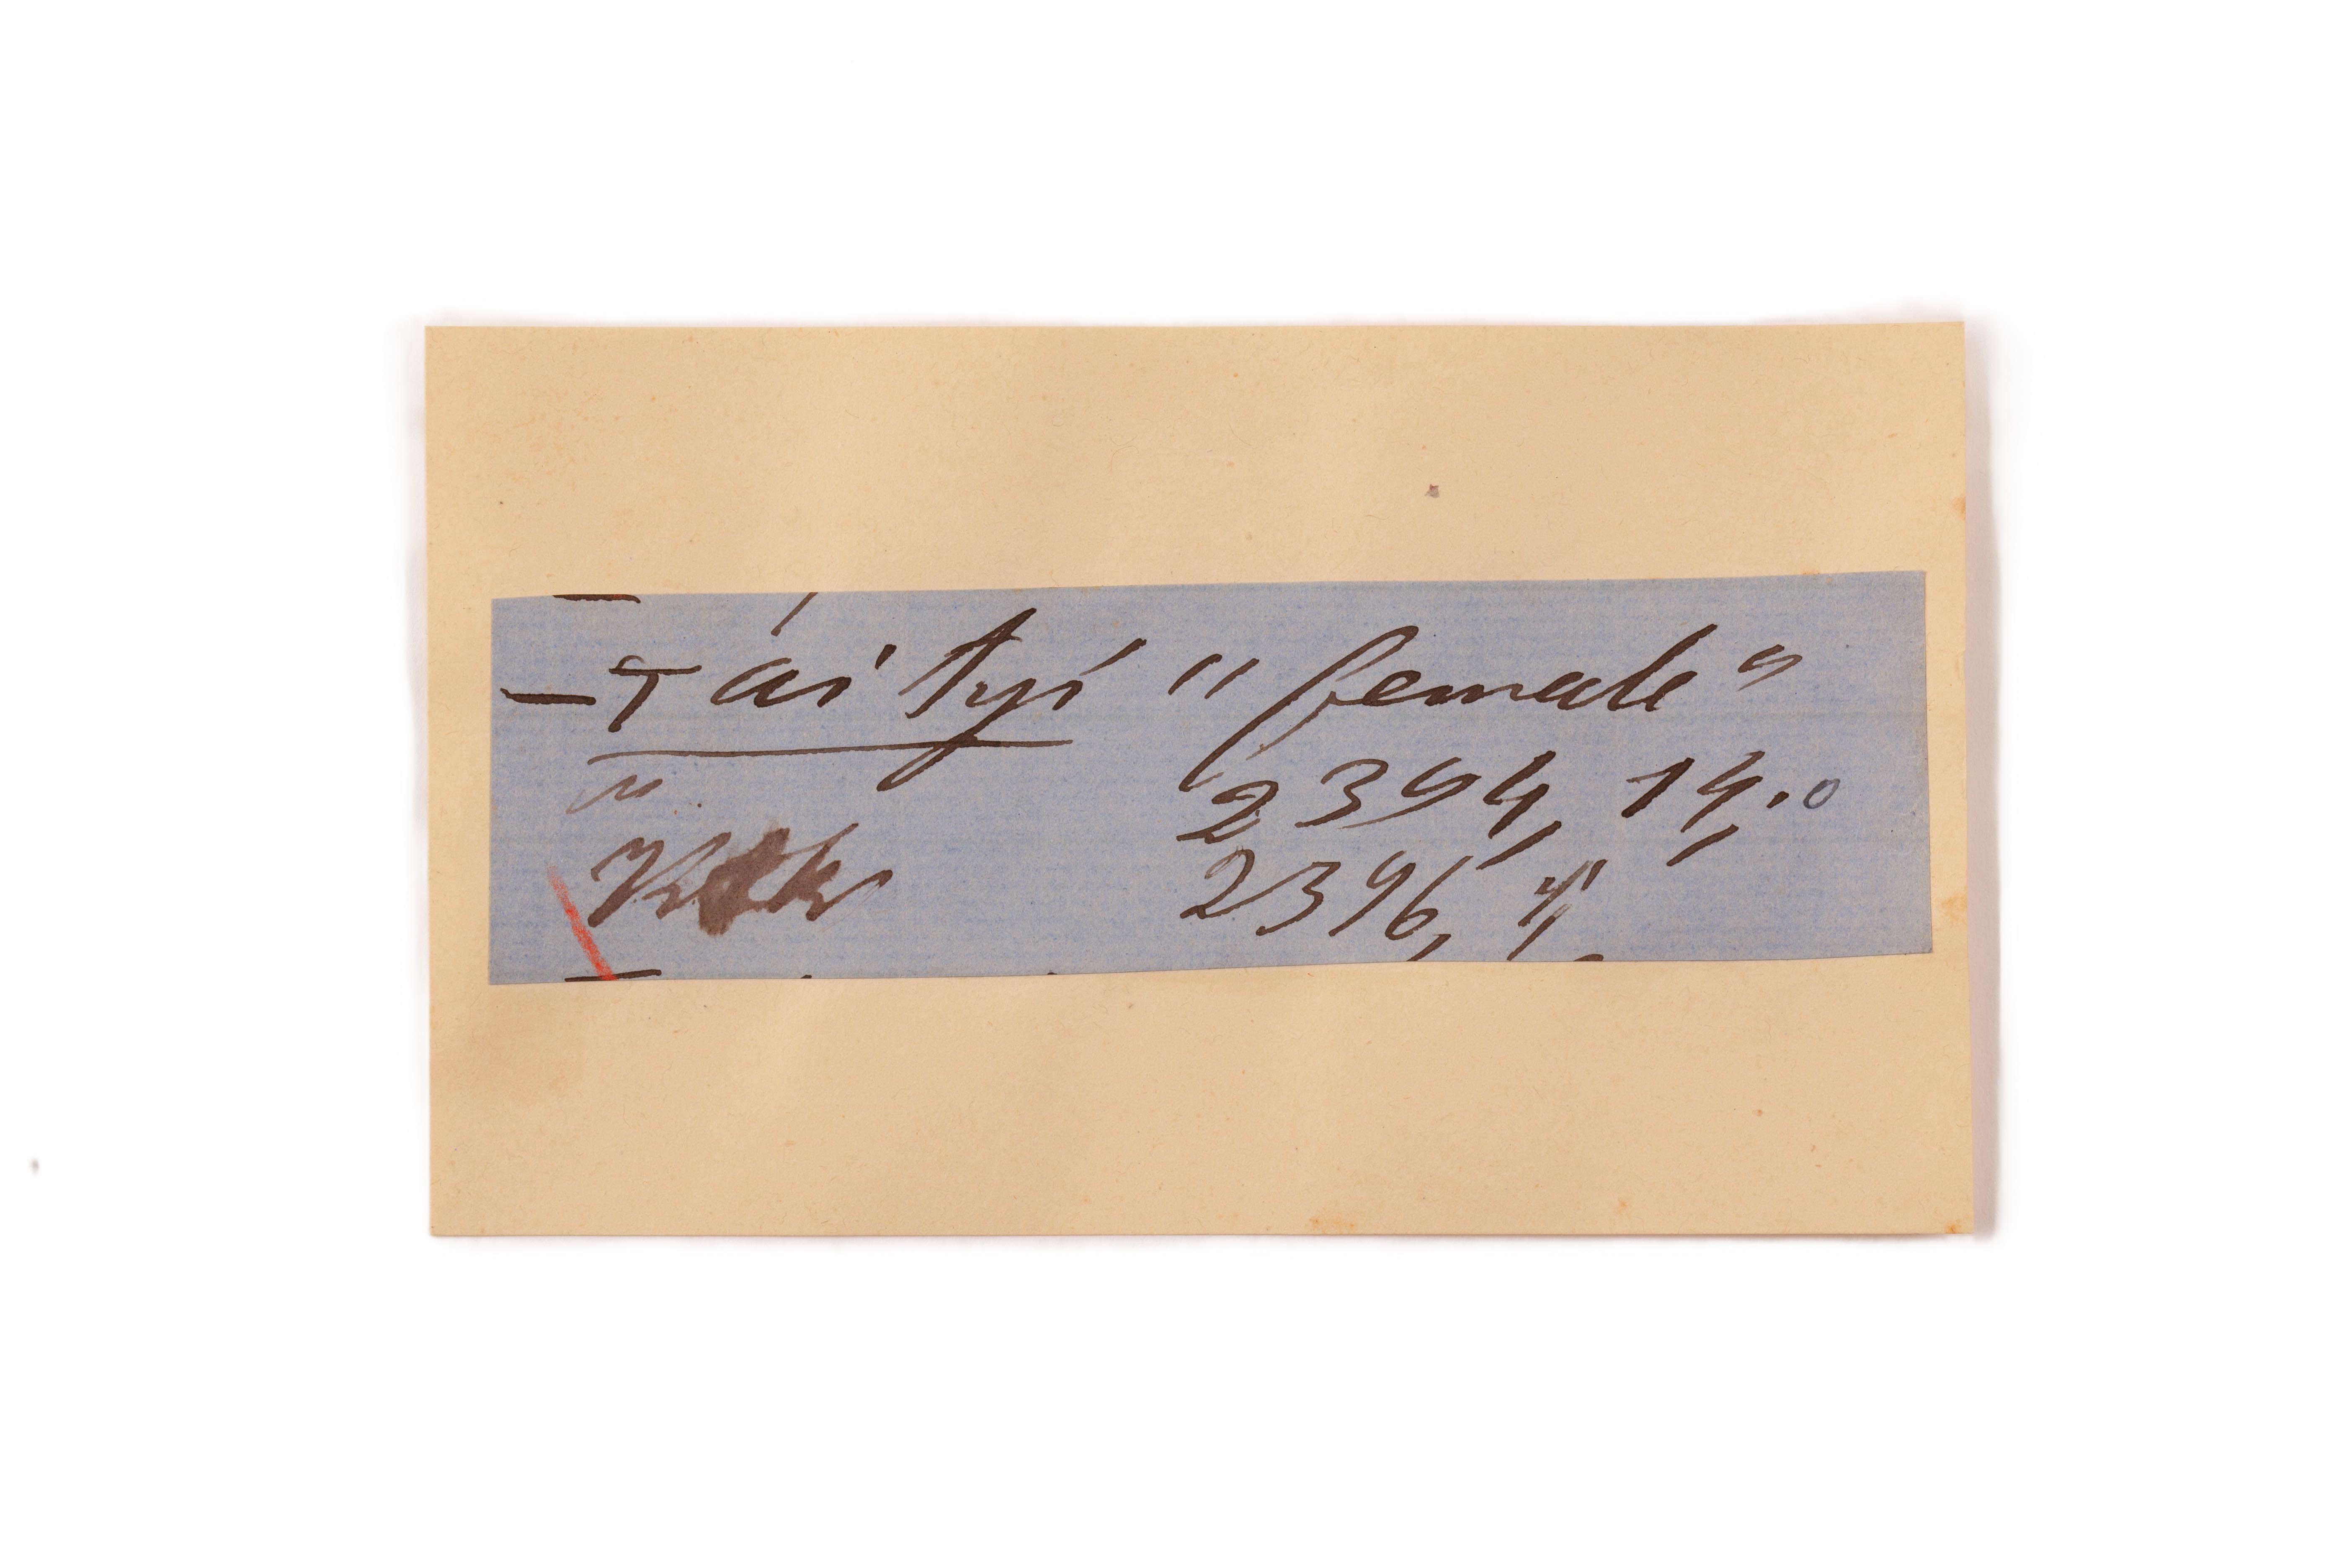 – T aítyi "female"
" 2394, 14,.o
2396, 4,